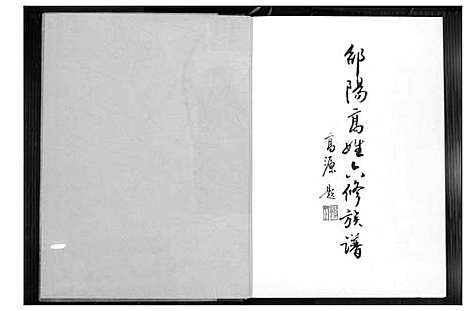 邵陽高姓六修族譜
高源題